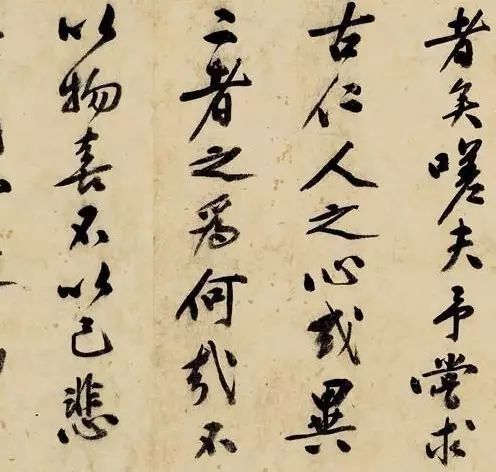 者矣嗟夫予嘗求
古仁人之心或異
二者之為何哉不
以物喜不以己悲